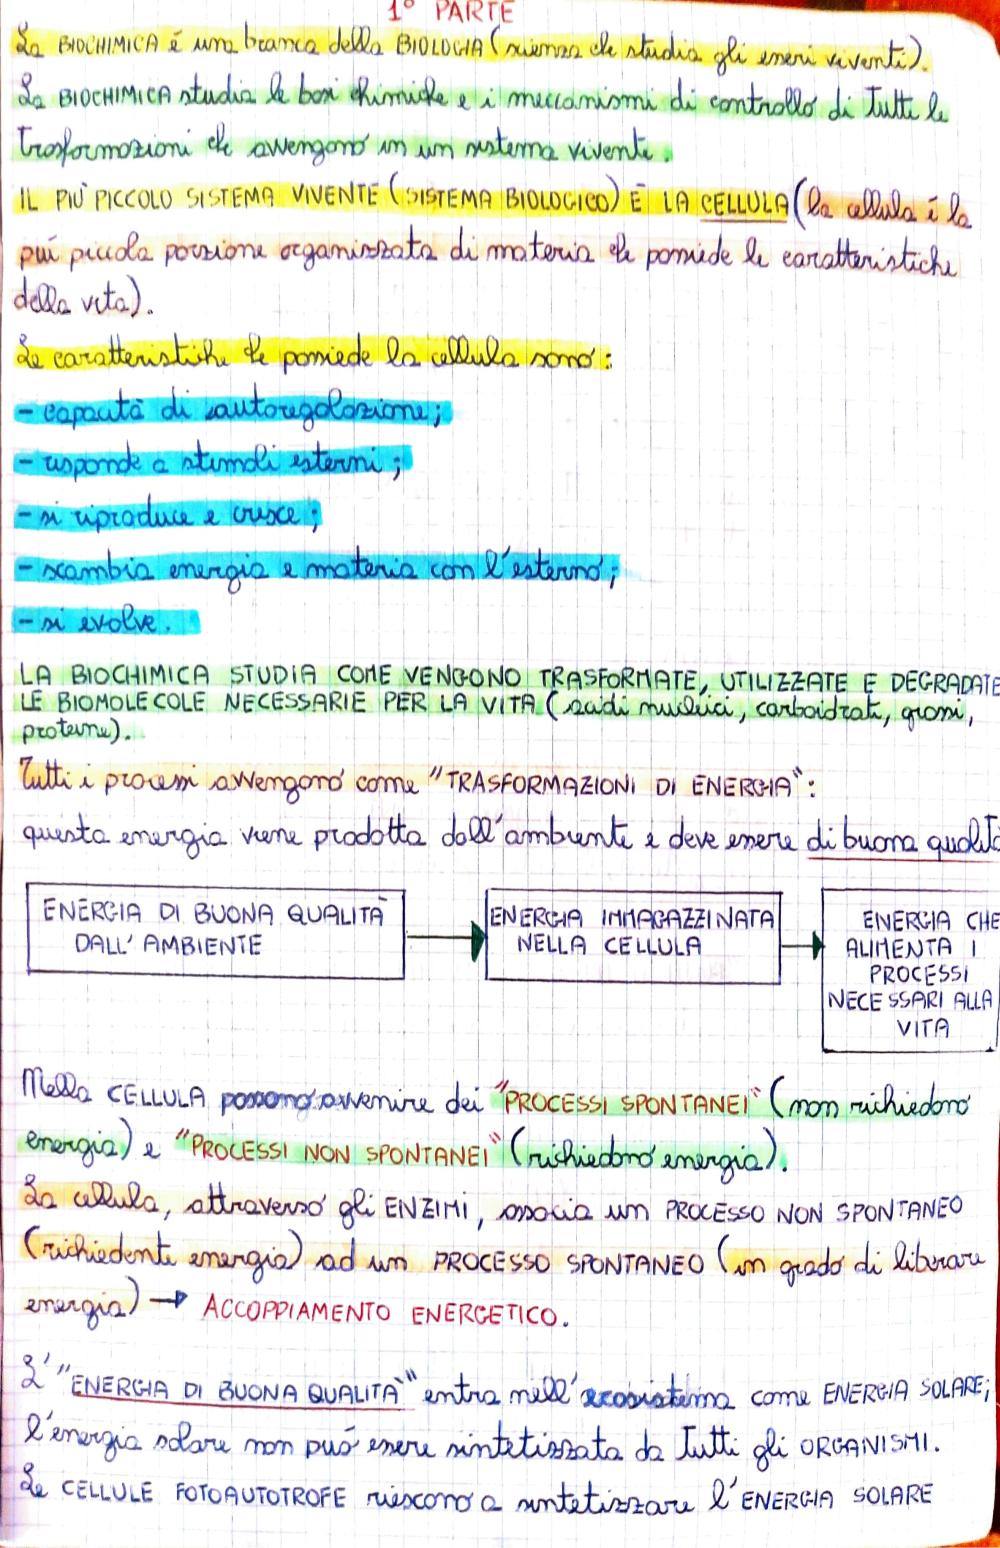 1° PARTE
La BIOCHIMICA é una branca della BIOLOGIA (scienza che studia gli esseri viventi).
La BIOCHIMICA studia le basi chimiche e i meccanismi di controllo di tutte le
trasformazioni che avvengono in un sistema vivente.
IL PIÙ PICCOLO SISTEMA VIVENTE (SISTEMA BIOLOGICO) È LA CELLULA (la cellula é la
piú piccola porzione organizzata di materia che possiede le caratteristiche
della vita).
Le caratteristiche che possiede la cellula sono:
- capacità di autoregolazione;
- risponde a stimoli esterni;
- si riproduce e cresce;
- scambia energia e materia con l'esterno;
- si evolve.
LA BIOCHIMICA STUDIA COME VENGONO TRASFORMATE, UTILIZZATE E DEGRADATE
LE BIOMOLECOLE NECESSARIE PER LA VITA (acidi nucleici, carboidrati, grassi,
proteine).
Tutti i processi avvengono come "TRASFORMAZIONI DI ENERGIA":
questa energia viene prodotta dall'ambiente e deve essere di buona qualità
ENERGIA DI BUONA QUALITÀ
DALL'AMBIENTE
ENERGIA IMMAGAZZINATA
NELLA CELLULA
ENERGIA CHE
ALIMENTA I
PROCESSI
NECESSARI ALLA
VITA
Nella CELLULA possono avvenire dei "PROCESSI SPONTANEI" (non richiedono
energia) e "PROCESSI NON SPONTANEI" (richiedono energia).
La cellula, attraverso gli ENZIMI, associa un PROCESSO NON SPONTANEO
(richiedente energia) ad un PROCESSO SPONTANEO (in grado di liberare
energia) → ACCOPPIAMENTO ENERGETICO.
L'"ENERGIA DI BUONA QUALITÀ" entra nell'ecosistema come ENERGIA SOLARE;
l'energia solare non può essere sintetizzata da tutti gli ORGANISMI.
Le CELLULE FOTOAUTOTROFE riescono a sintetizzare l'ENERGIA SOLARE